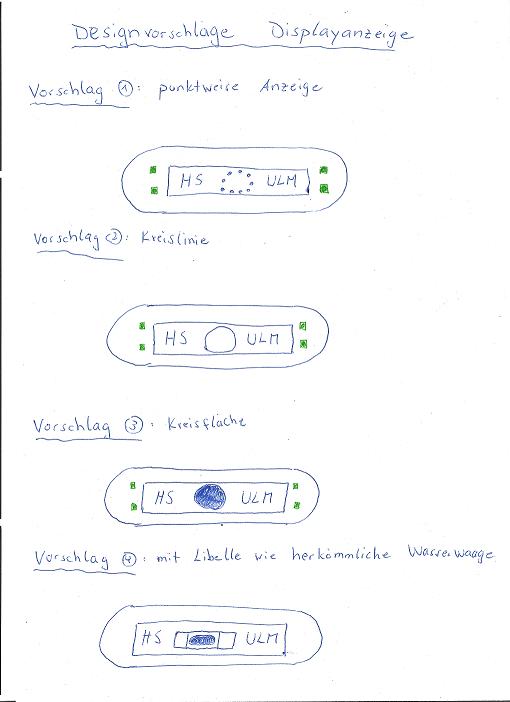 Designvorschläge Displayanzeige
Vorschlag ①: punktweise Anzeige
HS ULM
Vorschlag ②: Kreislinie
HS ULM
Vorschlag ③: Kreisfläche
HS ULM
Vorschlag ④: mit Libelle wie herkömmliche Wasserwaage
HS ULM